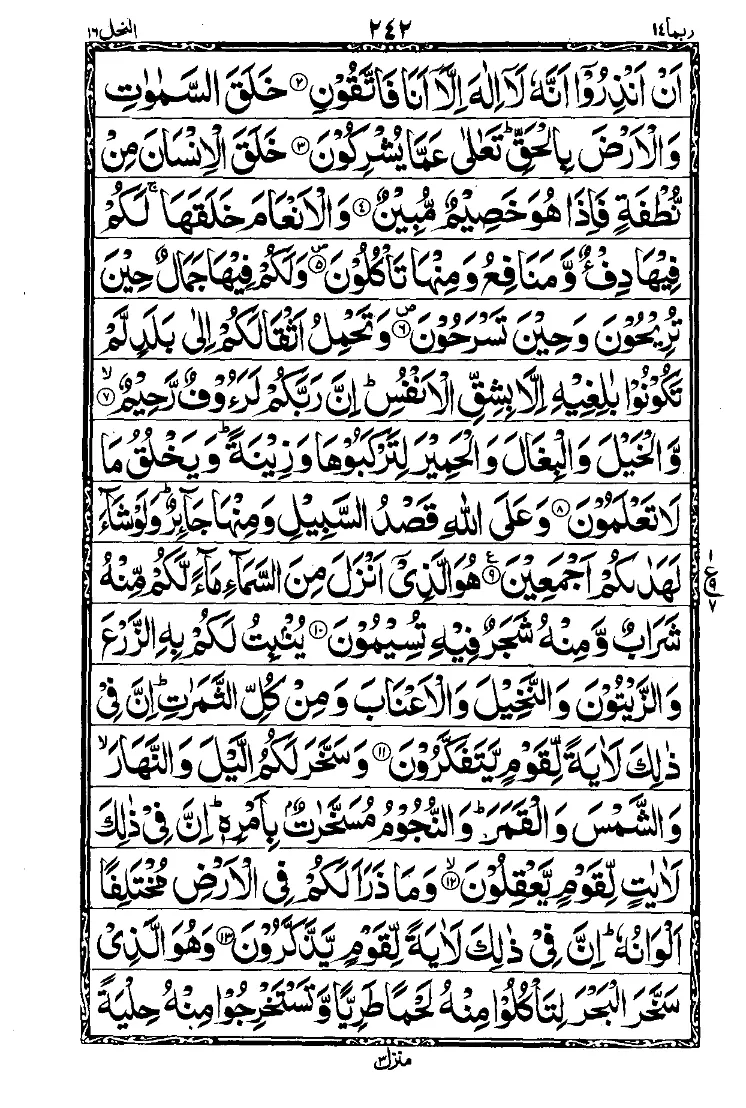 ربما ١٤ ٢٤٢ النحل ١٦
اَنْ اَنْذِرُوْۤا اَنَّهٗ لَاۤ اِلٰهَ اِلَّاۤ اَنَا فَاتَّقُوْنِ ﴿۲﴾ خَلَقَ السَّمٰوٰتِ
وَالْاَرْضَ بِالْحَقِّ ؕ تَعٰلٰى عَمَّا يُشْرِكُوْنَ ﴿۳﴾ خَلَقَ الْاِنْسَانَ مِنْ
نُّطْفَةٍ فَاِذَا هُوَ خَصِيْمٌ مُّبِيْنٌ ﴿۴﴾ وَالْاَنْعَامَ خَلَقَهَا ۚ لَكُمْ
فِيْهَا دِفْءٌ وَّمَنَافِعُ وَمِنْهَا تَاْكُلُوْنَ ﴿۵﴾ۖ وَلَكُمْ فِيْهَا جَمَالٌ حِيْنَ
تُرِيْحُوْنَ وَحِيْنَ تَسْرَحُوْنَ ﴿۶﴾ۖ وَتَحْمِلُ اَثْقَالَكُمْ اِلٰى بَلَدٍ لَّمْ
تَكُوْنُوْا بٰلِغِيْهِ اِلَّا بِشِقِّ الْاَنْفُسِ ؕ اِنَّ رَبَّكُمْ لَرَءُوْفٌ رَّحِيْمٌ ﴿۷﴾ۙ
وَّالْخَيْلَ وَالْبِغَالَ وَالْحَمِيْرَ لِتَرْكَبُوْهَا وَزِيْنَةً ؕ وَيَخْلُقُ مَا
لَا تَعْلَمُوْنَ ﴿۸﴾ وَعَلَى اللّٰهِ قَصْدُ السَّبِيْلِ وَمِنْهَا جَآئِرٌ ؕ وَلَوْ شَآءَ
لَهَدٰىكُمْ اَجْمَعِيْنَ ﴿۹﴾ ع هُوَ الَّذِيْۤ اَنْزَلَ مِنَ السَّمَآءِ مَآءً لَّكُمْ مِّنْهُ
١ ع ٩ ٧
شَرَابٌ وَّمِنْهُ شَجَرٌ فِيْهِ تُسِيْمُوْنَ ﴿۱۰﴾ يُنْۢبِتُ لَكُمْ بِهِ الزَّرْعَ
وَالزَّيْتُوْنَ وَالنَّخِيْلَ وَالْاَعْنَابَ وَمِنْ كُلِّ الثَّمَرٰتِ ؕ اِنَّ فِيْ
ذٰلِكَ لَاٰيَةً لِّقَوْمٍ يَّتَفَكَّرُوْنَ ﴿۱۱﴾ وَسَخَّرَ لَكُمُ الَّيْلَ وَالنَّهَارَ ۙ
وَالشَّمْسَ وَالْقَمَرَ ؕ وَالنُّجُوْمُ مُسَخَّرٰتٌۢ بِاَمْرِهٖ ؕ اِنَّ فِيْ ذٰلِكَ
لَاٰيٰتٍ لِّقَوْمٍ يَّعْقِلُوْنَ ﴿۱۲﴾ۙ وَمَا ذَرَاَ لَكُمْ فِي الْاَرْضِ مُخْتَلِفًا
اَلْوَانُهٗ ؕ اِنَّ فِيْ ذٰلِكَ لَاٰيَةً لِّقَوْمٍ يَّذَّكَّرُوْنَ ﴿۱۳﴾ وَهُوَ الَّذِيْ
سَخَّرَ الْبَحْرَ لِتَاْكُلُوْا مِنْهُ لَحْمًا طَرِيًّا وَّتَسْتَخْرِجُوْا مِنْهُ حِلْيَةً
منزل ٣